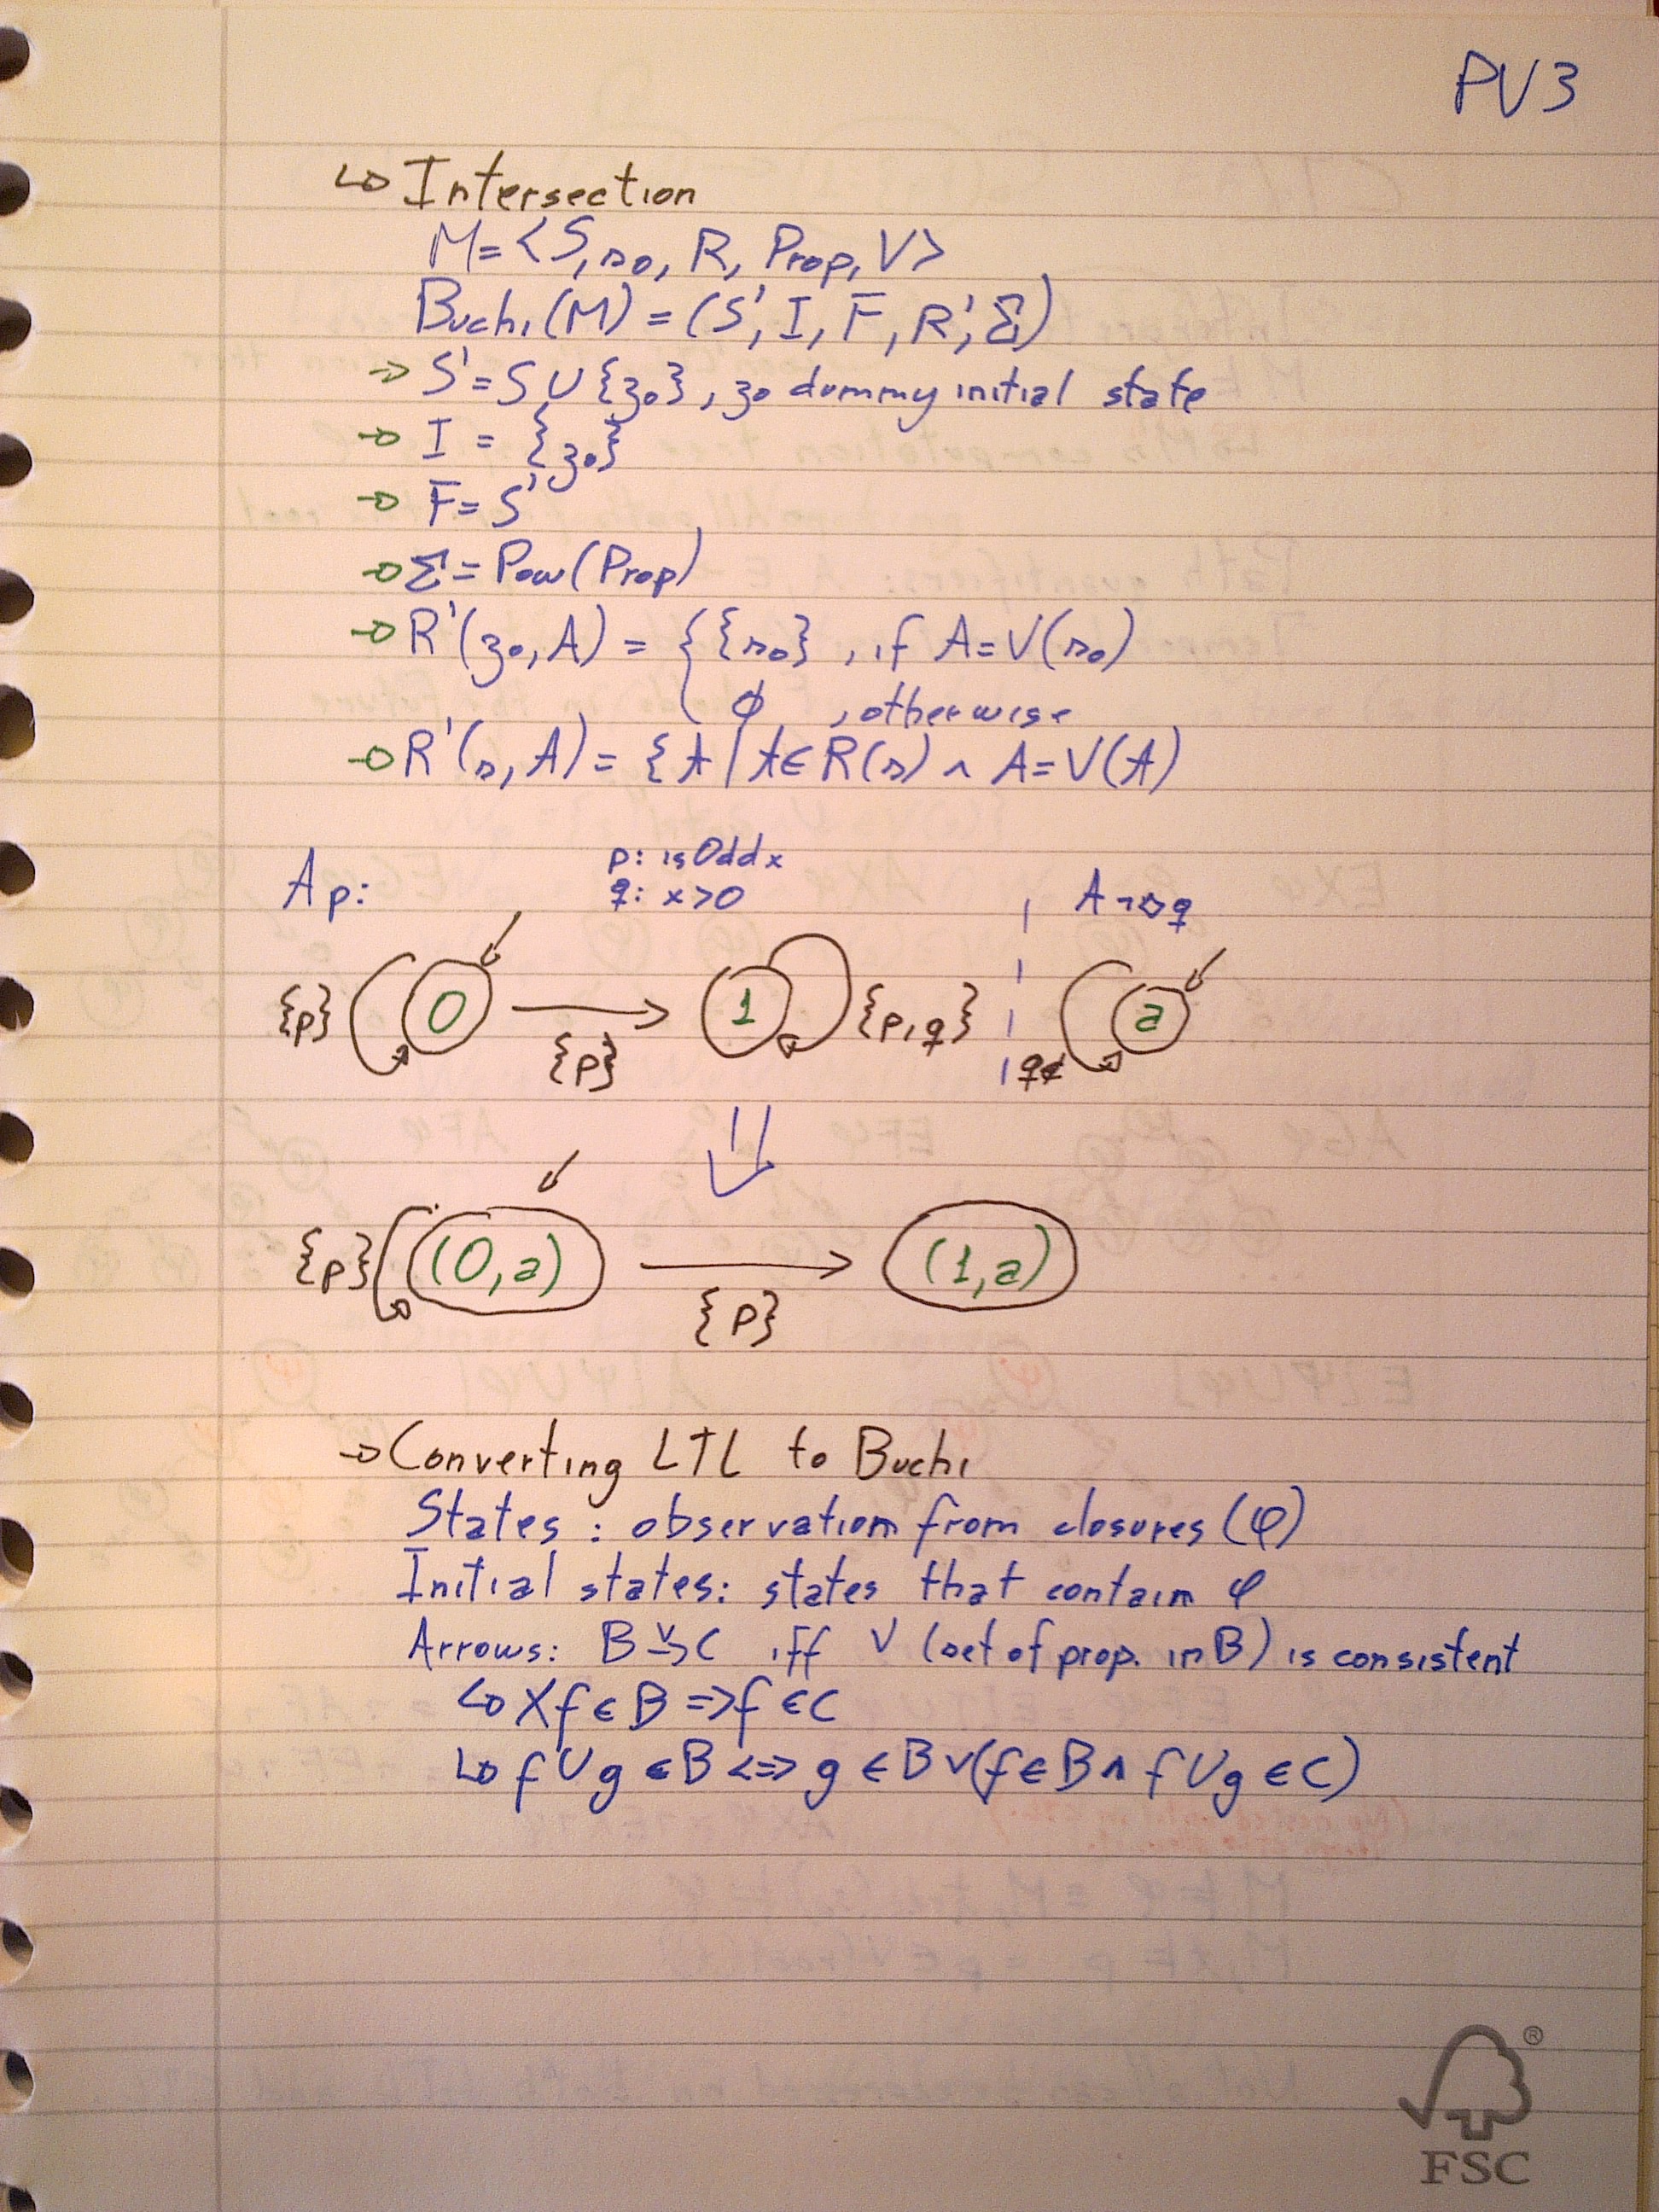 PV3
↳ Intersection
M=<S, s0, R, Prop, V>
Buchi(M) = (S', I, F, R', Σ)
→ S' = S ∪ {z0}, z0 dummy initial state
→ I = {z0}
→ F = S'
→ Σ = Pow(Prop)
→ R'(z0, A) = { {s0} , if A = V(s0)
∅ , otherwise
→ R'(s, A) = {t | t ∈ R(s) ∧ A = V(t)
Ap: p: isOdd x
q: x>0 A¬◇q
{p} 0 1 {p,q} a
{p}
{p} (0,a) (1,a)
{p}
→ Converting LTL to Buchi
States: observation from closures (φ)
Initial states: states that contain φ
Arrows: B →v C iff V (set of prop. in B) is consistent
↳ Xf ∈ B => f ∈ C
↳ f U g ∈ B <=> g ∈ B ∨ (f ∈ B ∧ f U g ∈ C)
®
FSC